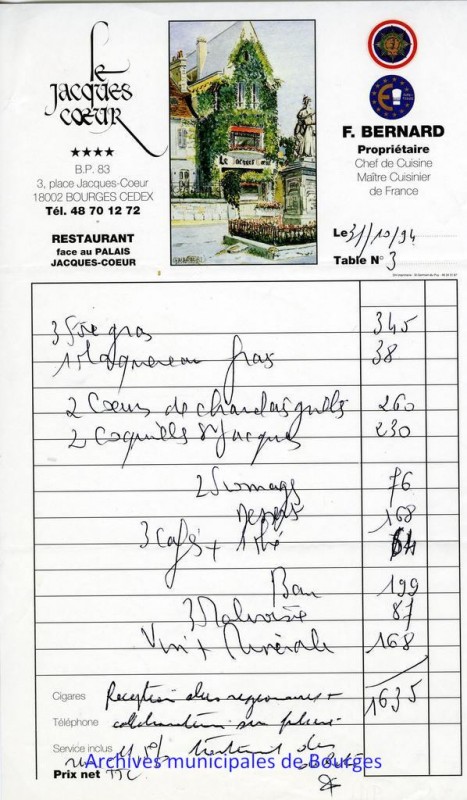 Le
Jacques
Cœur
★★★★
B.P. 83
3, place Jacques-Coeur
18002 BOURGES CEDEX
Tél. 48 70 12 72
RESTAURANT
face au PALAIS
JACQUES-COEUR
Le Jacques Coeur
F. BERNARD
Propriétaire
Chef de Cuisine
Maître Cuisinier
de France
Le 31/10/94
Table N° 3
3 Foie gras 345
1 Maquereau frais 38
2 Coeurs de 260
2 Coquilles St Jacques 230
2 Fromages 76
Desserts 168
3 Cafés + 1 thé 64
Bar 199
3 87
Vin + Minérale 168
1635
Cigares Réception élus régionaux +
Téléphone collaborateurs sur
Service inclus
Prix net TTC
Archives municipales de Bourges